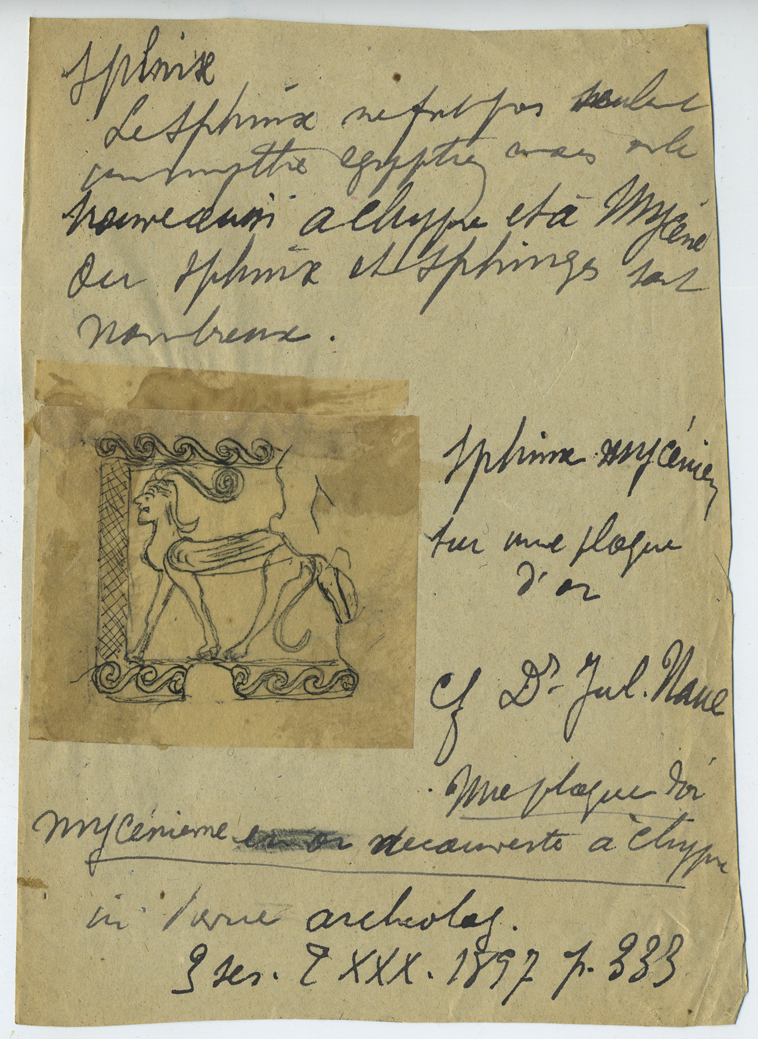 Sphinx
Le Sphinx ne fut pas seulemt
un mythe egyptien mais on le
trouve aussi a Chypre et à Mycène
Ou sphinx et sphinges sont
nombreux.
Sphinx mycénien
sur une plaque
d'or
cf Dr Jul. Naue
Une plaque d'or
mycénienne decouverte à Chypre
in Revue archeolog.
3 ser. T XXX. 1897 p. 333